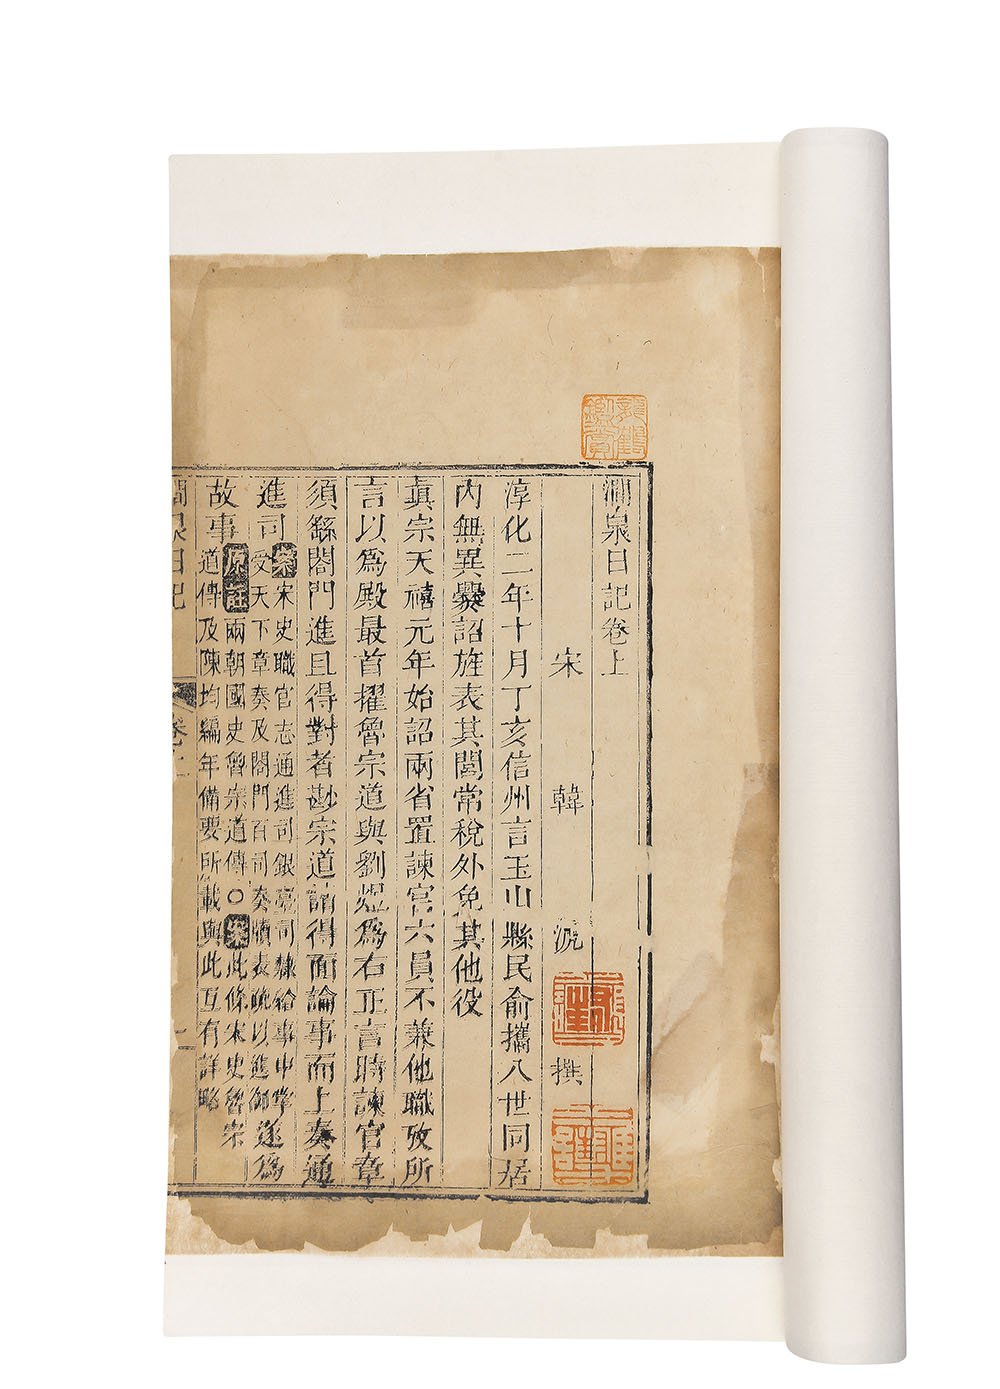 澗泉日記卷上
宋 韓 淲 撰
淳化二年十月丁亥信州言玉山縣民俞攜八世同居
內無異爨詔旌表其閭常稅外免其他役
眞宗天禧元年始詔兩省置諫官六員不兼他職攷所
言以爲殿最首擢魯宗道與劉煜爲右正言時諫官章
須繇閤門進且得對者尠宗道請得面論事而上奏通
進司案宋史職官志通進司銀臺司隸給事中掌受天下章奏及閤門百司奏牘表疏以進御遂爲
故事原註兩朝國史魯宗道傳○案此條宋史魯宗道傳及陳均編年備要所載與此互有詳略
澗泉日記 卷上 一